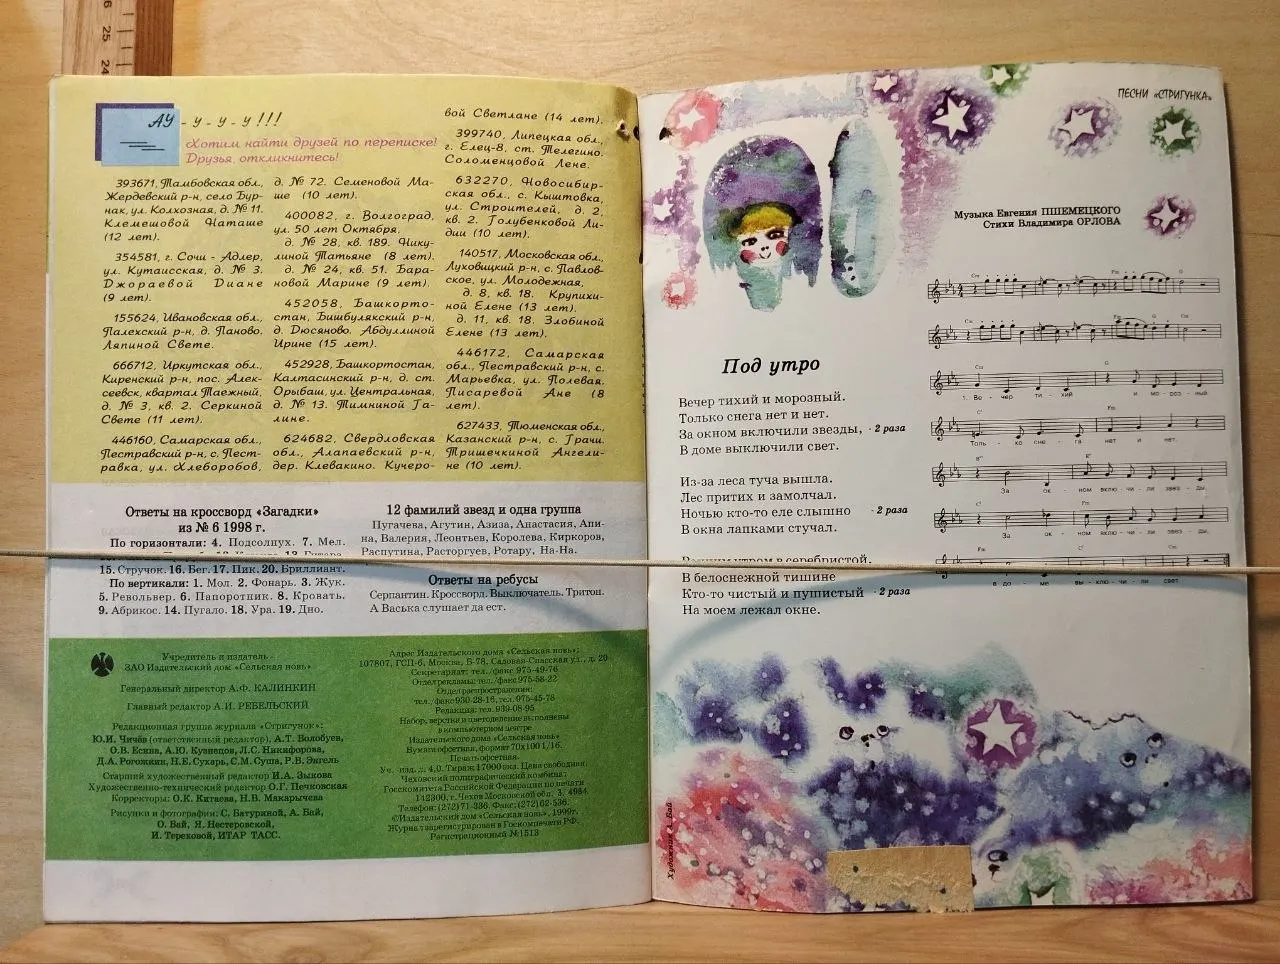 АУ - У - У - У !!!
«Хотим найти друзей по переписке!
Друзья, откликнитесь!
393671, Тамбовская обл.,
Жердевский р-н, село Бур-
нак, ул. Колхозная, д. № 11.
Клемешовой Наташе
(12 лет).
354581, г. Сочи - Адлер,
ул. Кутаисская, д. № 3.
Джораевой Диане
(9 лет).
155624, Ивановская обл.,
Палехский р-н, д. Паново.
Ляпиной Свете.
666712, Иркутская обл.,
Киренский р-н, пос. Алек-
сеевск, квартал Таежный,
д. № 3, кв. 2. Серкиной
Свете (11 лет).
446160, Самарская обл.,
Пестравский р-н, с. Пест-
равка, ул. Хлеборобов,
д. № 72. Семеновой Ма-
ше (10 лет).
400082, г. Волгоград,
ул. 50 лет Октября,
д. № 28, кв. 189. Нику-
линой Татьяне (8 лет).
д. № 24, кв. 51. Бара-
новой Марине (9 лет).
452058, Башкорто-
стан, Бишбулякский р-н,
д. Дюсяново. Абдуллиной
Ирине (15 лет).
452928, Башкортостан,
Калтасинский р-н, д. ст.
Орыбаш, ул. Центральная,
д. № 13. Тимниной Га-
лине.
624682, Свердловская
обл., Алапаевский р-н,
дер. Клевакино. Кучеро-
вой Светлане (14 лет).
399740, Липецкая обл.,
г. Елец-8, ст. Телегино.
Соломенцовой Лене.
632270, Новосибир-
ская обл., с. Кыштовка,
ул. Строителей, д. 2,
кв. 2. Голубенковой Ли-
дии (10 лет).
140517, Московская обл.,
Луховицкий р-н, с. Павлов-
ское, ул. Молодежная,
д. 8, кв. 18. Крупихи-
ной Елене (13 лет).
д. 11, кв. 18. Злобиной
Елене (13 лет).
446172, Самарская
обл., Пестравский р-н, с.
Марьевка, ул. Полевая.
Писаревой Ане (8
лет).
627433, Тюменская обл.,
Казанский р-н, с. Грачи.
Тришечкиной Ангели-
не (10 лет).
Ответы на кроссворд «Загадки»
из № 6 1998 г.
По горизонтали: 4. Подсолнух. 7. Мел.
15. Стручок. 16. Бег. 17. Пик. 20. Бриллиант.
По вертикали: 1. Мол. 2. Фонарь. 3. Жук.
5. Револьвер. 6. Папоротник. 8. Кровать.
9. Абрикос. 14. Пугало. 18. Ура. 19. Дно.
12 фамилий звезд и одна группа
Пугачева, Агутин, Азиза, Анастасия, Апи-
на, Валерия, Леонтьев, Королева, Киркоров,
Распутина, Расторгуев, Ротару, На-На.
Ответы на ребусы
Серпантин. Кроссворд. Выключатель. Тритон.
А Васька слушает да ест.
Учредитель и издатель -
ЗАО Издательский дом «Сельская новь»
Генеральный директор А.Ф. КАЛИНКИН
Главный редактор А.И. РЕБЕЛЬСКИЙ
Редакционная группа журнала «Стригунок»:
Ю.И. Чичёв (ответственный редактор), А.Т. Волобуев,
О.В. Есина, А.Ю. Кузнецов, Л.С. Никифорова,
Д.А. Рогожкин, Н.Е. Сухарь, С.М. Суша, Р.В. Энгель
Старший художественный редактор И.А. Зыкова
Художественно-технический редактор О.Г. Печковская
Корректоры: О.К. Китаева, Н.В. Макарычева
Рисунки и фотографии: С. Батуриной, А. Бай,
О. Бай, Я. Нестеровской,
И. Тереховой, ИТАР ТАСС.
Адрес Издательского дома «Сельская новь»:
107807, ГСП-6, Москва, Б-78, Садовая-Спасская ул., д. 20
Секретариат: тел./факс 975-49-76
Отдел рекламы: тел./факс 975-58-22
Отдел распространения:
тел./факс 930-28-16, тел. 975-45-78
Редакция: тел. 939-08-95
Набор, верстка и цветоделение выполнены
в компьютерном центре
Издательского дома «Сельская новь»
Бумага офсетная, формат 70x100 1/16.
Печать офсетная.
Уч. -изд. л. 4,0. Тираж 17000 экз. Цена свободная.
Чеховский полиграфический комбинат
Госкомитета Российской Федерации по печати
142300, г. Чехов Московской обл. З. 4984.
Телефон: (272) 71-336. Факс: (272) 62-536.
©Издательский дом «Сельская новь», 1999г.
Журнал зарегистрирован в Госкомпечати РФ.
Регистрационный №1513
ПЕСНИ «СТРИГУНКА»
Музыка Евгения ПШЕМЕЦКОГО
Стихи Владимира ОРЛОВА
Под утро
Вечер тихий и морозный.
Только снега нет и нет.
За окном включили звезды, - 2 раза
В доме выключили свет.
Из-за леса туча вышла.
Лес притих и замолчал.
Ночью кто-то еле слышно - 2 раза
В окна лапками стучал.
В белоснежной тишине
Кто-то чистый и пушистый - 2 раза
На моем лежал окне.
1. Ве - чер ти - хий и мо-роз-ный.
Толь - ко сне - га нет и нет.
За ок - ном вклю-чи-ли звез-ды,
За ок - ном вклю-чи-ли звез-ды,
в до - ме вы-клю-чи-ли свет
Художник А. Бай
25
24